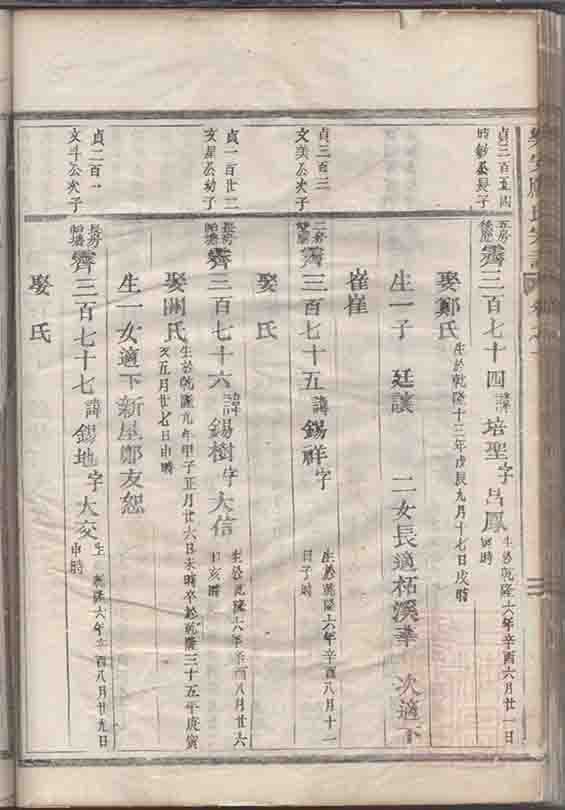 貞三百五四
時鈔公長子
齊三百七十四諱培聖字呂鳳
生於乾隆六年辛酉六月廿一日
寅時
娶鄭氏
生於乾隆十三年戊辰九月十七日戌時
生一子 廷談 二女長適柘溪 次適下
崔崔
貞三百三
文美公次子
齊三百七十五諱錫祥字
生於乾隆六年辛酉八月十一
日子時
娶 氏
貞一百廿二
文星公幼子
長房
齊三百七十六諱錫樹字大信
生於乾隆六年辛酉八月廿六
日亥時
娶周氏
生於乾隆九年甲子正月廿六日未時卒於乾隆三十五年庚寅
五月廿七日申時
生一女適下新屋鄭友恕
貞二百一
文斗公次子
長房
齊三百七十七諱錫地字大交
生 乾隆六年辛酉八月廿九日
申時
娶 氏